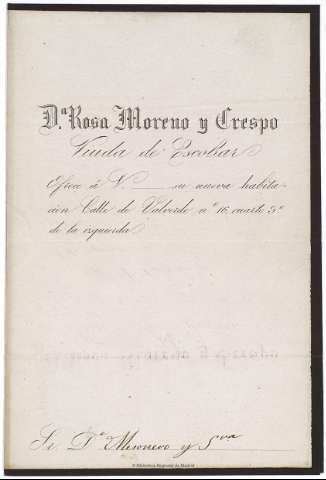 D.ª Rosa Moreno y Crespo
Viuda de Escobar
Ofrece á V. ____ su nueva habita-
ción Calle de Valverde nº 16, cuarto 3º
de la izquierda
Sr. Dn Mesonero y Sra
© Biblioteca Regional de Madrid